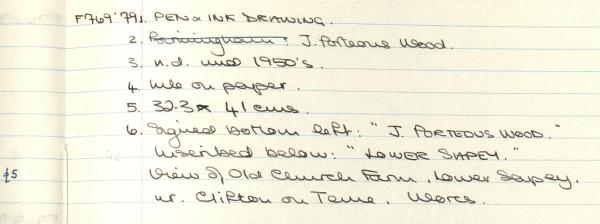 F769'79 1. PEN & INK DRAWING.
2. Birmingham: J. Porteous Wood.
3. n.d. mid 1950's.
4. Ink on paper.
5. 32.3 x 41 cms.
6. Signed bottom left: "J. PORTEOUS WOOD."
Inscribed below: "LOWER SAPEY."
£5 View of Old Church Farm, Lower Sapey,
nr. Clifton on Teme, Worcs.